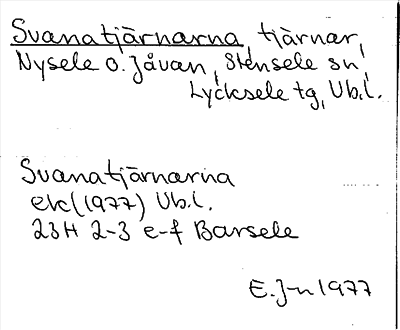 Svanatjärnarna, tjärnar,
Nysele o. Jåvan, Stensele sn,
Lycksele tg, Vb.l.
Svanatjärnarna
ek (1977) Vb.l.
23H 2-3 e-f Barsele
E. J-n 1977